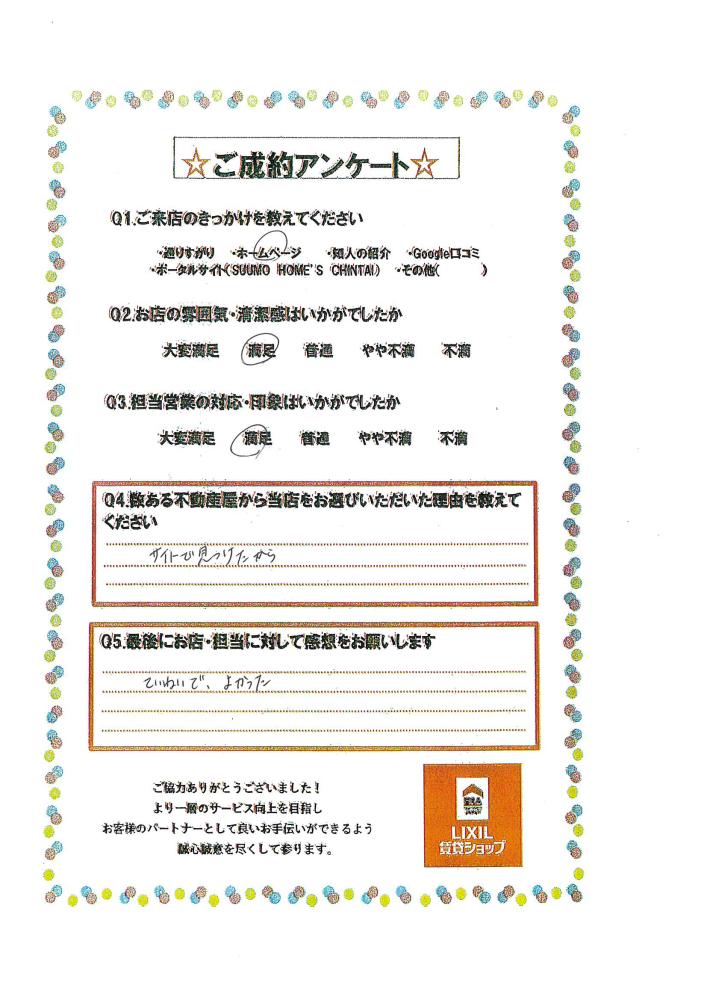 ☆ご成約アンケート☆
Q1.ご来店のきっかけを教えてください
・通りすがり ・ホームページ ・知人の紹介 ・Google口コミ
・ポータルサイト(SUUMO HOME'S CHINTAI) ・その他( )
Q2.お店の雰囲気・清潔感はいかがでしたか
大変満足 満足 普通 やや不満 不満
Q3.担当営業の対応・印象はいかがでしたか
大変満足 満足 普通 やや不満 不満
Q4.数ある不動産屋から当店をお選びいただいた理由を教えて
ください
サイトで見つけたから
Q5.最後にお店・担当に対して感想をお願いします
ていねいで、よかった
ご協力ありがとうございました!
より一層のサービス向上を目指し
お客様のパートナーとして良いお手伝いができるよう
誠心誠意を尽くして参ります。
ERA
LIXIL
賃貸ショップ